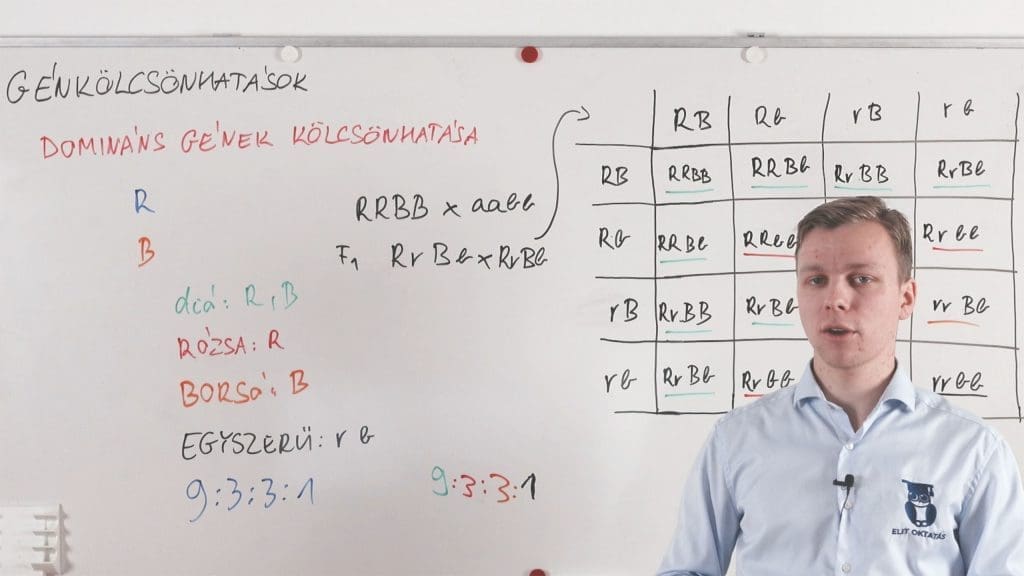 GÉNKÖLCSÖNHATÁSOK
DOMINÁNS GÉNEK KÖLCSÖNHATÁSA
R
B
RRBB x aabb
F1 RrBb x RrBb
dió: R, B
RÓZSA: R
BORSÓ: B
EGYSZERŰ: r b
9:3:3:1
9:3:3:1
RB Rb rB rb
RB RRBB RRBb RrBB RrBb
Rb RRBb RRbb Rrbb
rB RrBB RrBb rrBb
rb RrBb Rrbb rrbb
ELIT OKTATÁS